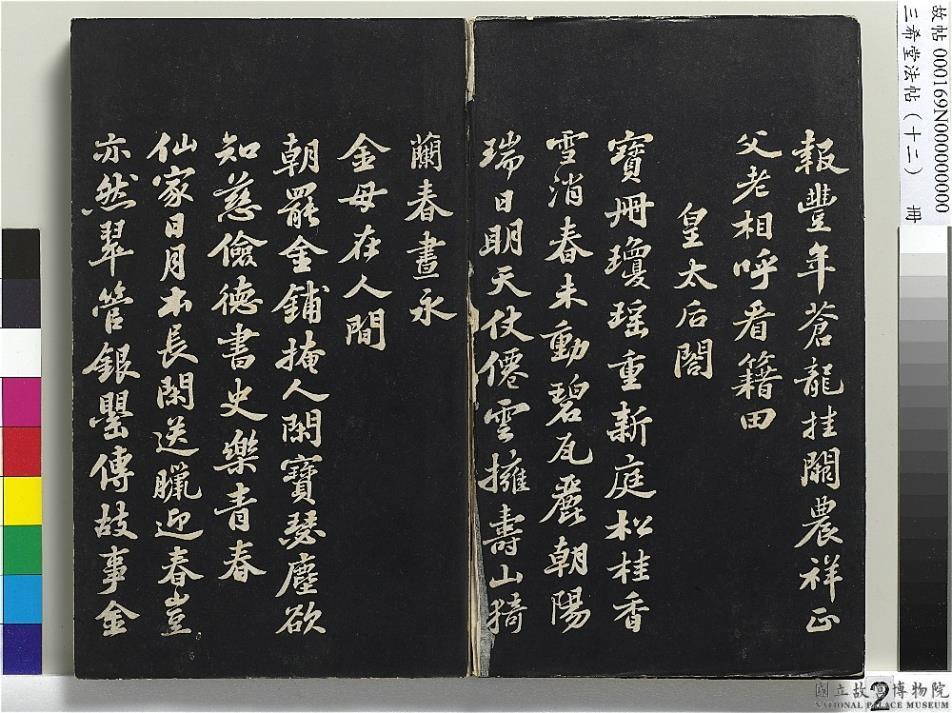 報豐年蒼龍挂闕農祥正
父老相呼看籍田
皇太后閤
寶冊瓊瑤重新庭松桂香
雪消春未動碧瓦麗朝陽
瑞日明天仗僊雲擁壽山猗
蘭春晝永
金母在人間
朝罷金鋪掩人閑寶瑟塵欲
知慈儉德書史樂青春
仙家日月本長閑送臘迎春豈
亦然翠管銀罌傳故事金
故帖 000169N000000000
三希堂法帖(十二) 冊
國立故宮博物院
NATIONAL PALACE MUSEUM
2